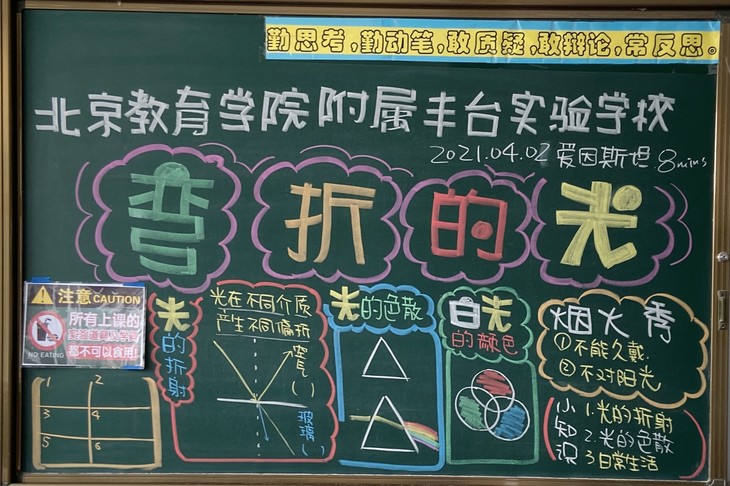 勤思考,勤动笔,敢质疑,敢辩论,常反思。
北京教育学院附属丰台实验学校
2021.04.02 爱因斯坦 8mins
弯折的光
注意 CAUTION
所有上课的
都不可以食用!
NO EATING
1 2
3 4
5 6
光的折射
光在不同介质
产生不同偏折
空气( )
玻璃( )
光的色散
白光
的颜色
烟火秀
①不能久戴
②不对阳光
小知识
1.光的折射
2.光的色散
3日常生活